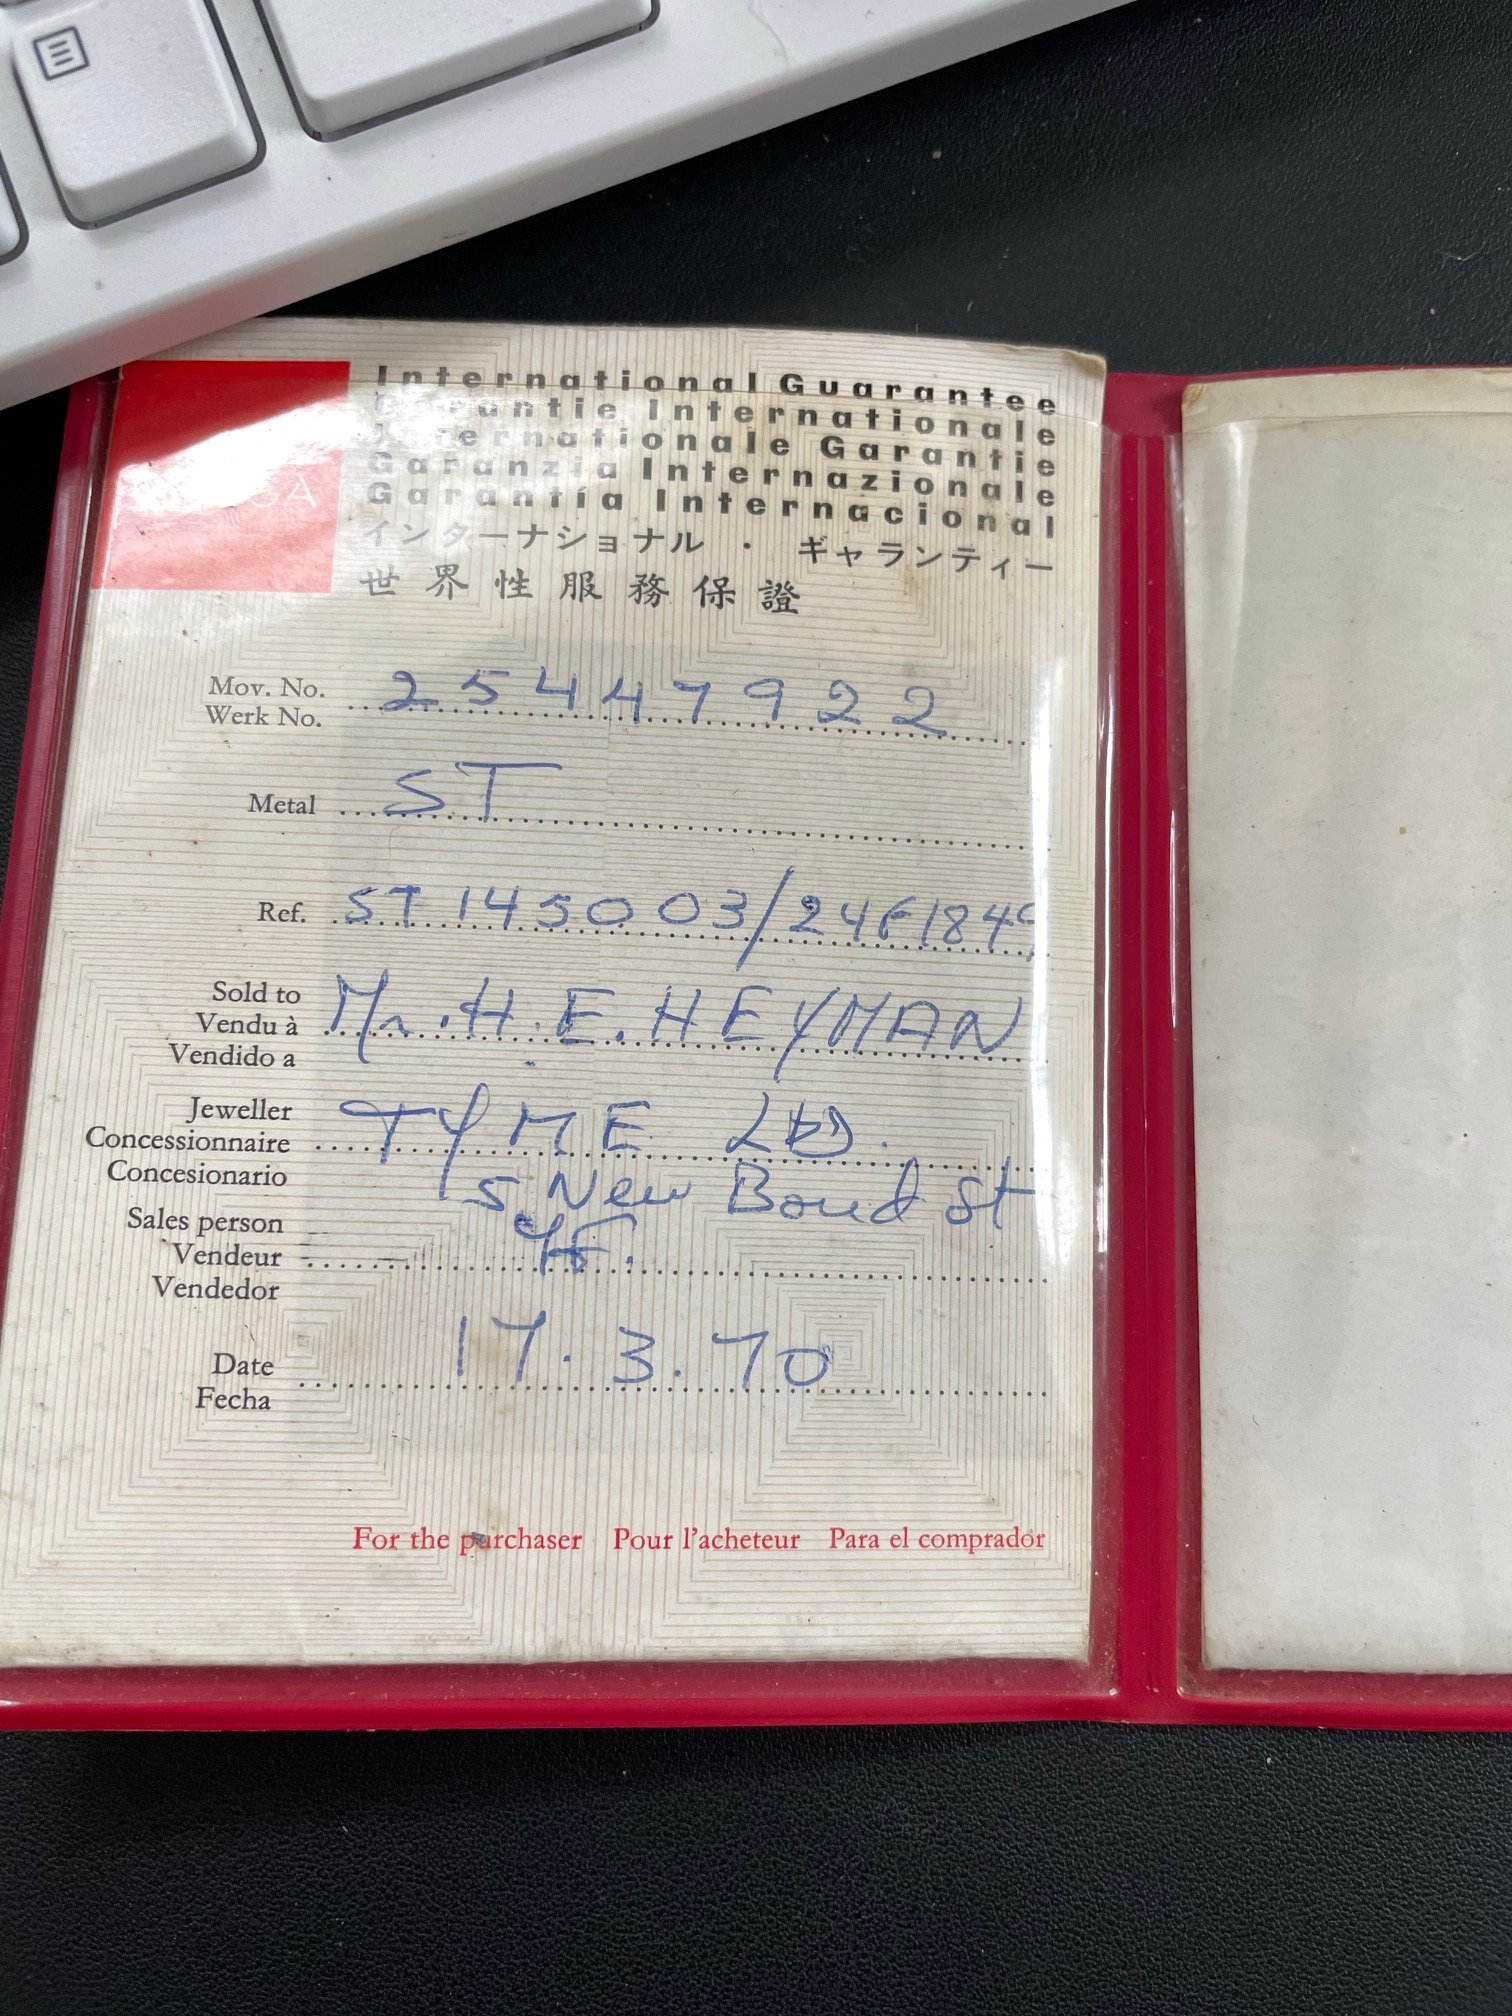 International Guarantee
Garantie Internationale
Internationale Garantie
Garanzia Internazionale
Garantía Internacional
インターナショナル・ギャランティー
世界性服務保證
Mov. No.
Werk No. 25447922
Metal ST
Ref. ST 145003/
Sold to
Vendu à Mr. H. E. HEYMAN
Vendido a
Jeweller
Concessionnaire TYME LTD.
Concesionario 5 New Bond St
Sales person
Vendeur
Vendedor
Date 17.3.70
Fecha
For the purchaser Pour l'acheteur Para el comprador